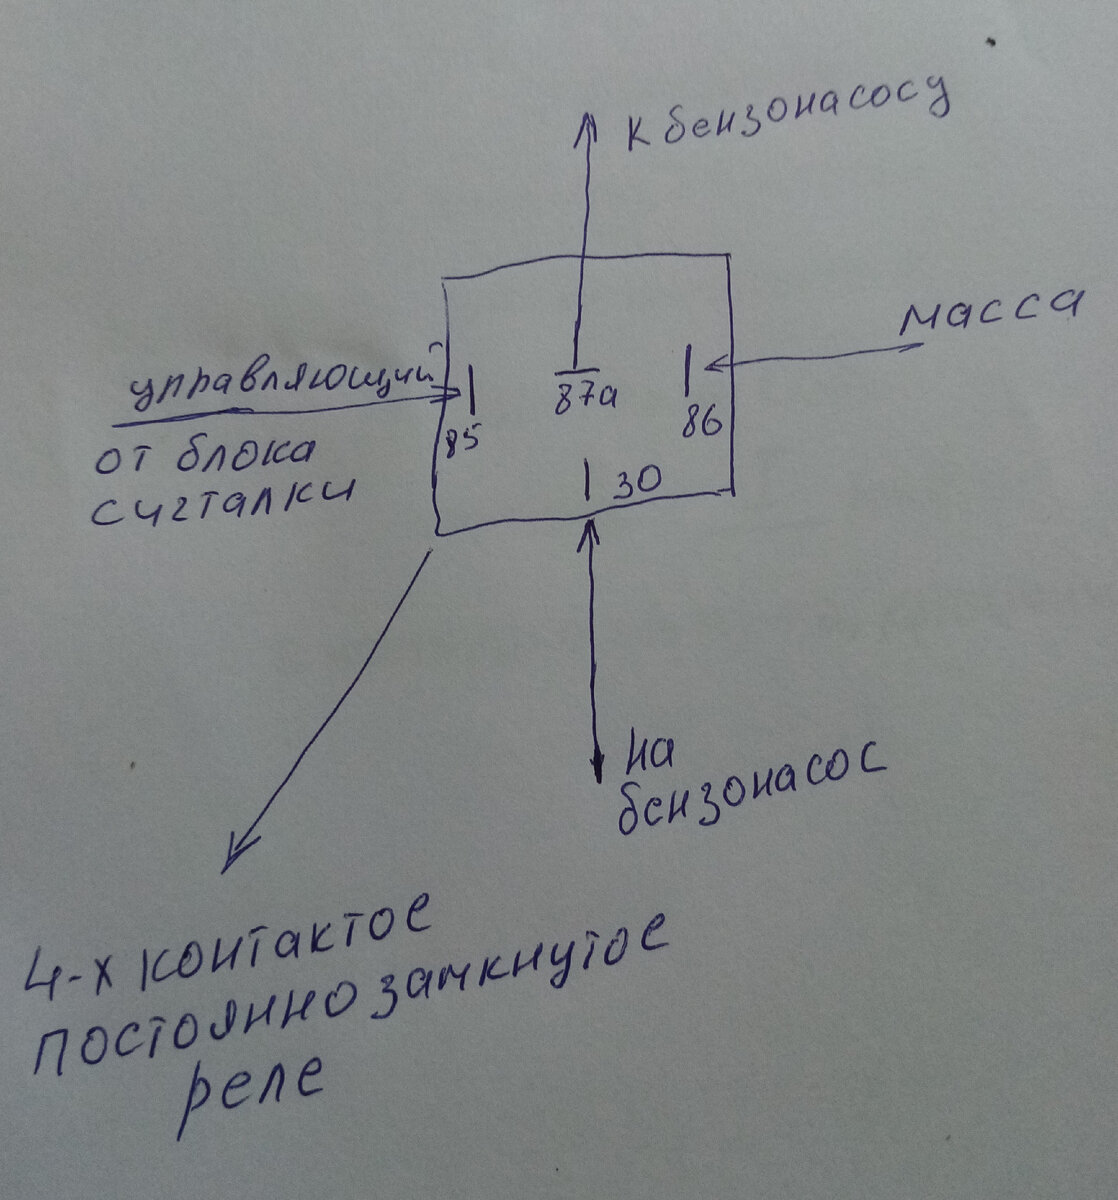 к бензонасосу
масса
управляющий
от блока
сигталки
87а
86
85
30
на
бензонасос
4-х контактое
постоянно замкнутое
реле